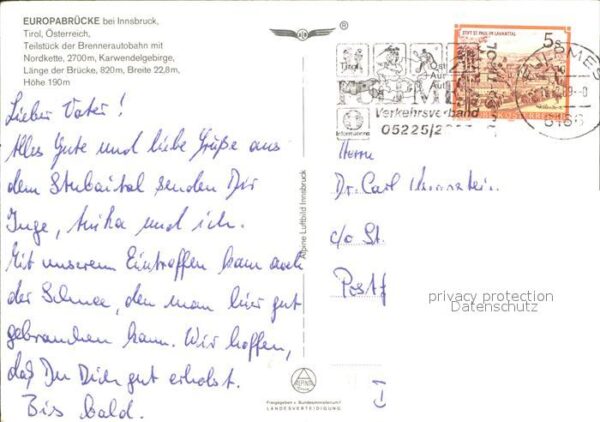 EUROPABRÜCKE bei Innsbruck,
Tirol, Österreich,
Teilstück der Brennerautobahn mit
Nordkette, 2700m, Karwendelgebirge,
Länge der Brücke, 820m, Breite 22,8m,
Höhe 190m
Lieber Vater!
Alles Gute und liebe Grüße aus
dem Stubaital senden Dir
Inge, Anka und ich.
Mit unserem Eintreffen kam auch
der Schnee, den man hier gut
gebrauchen kann. Wir hoffen,
daß Du Dich gut erholst.
Bis bald.
Alpine Luftbild Innsbruck
®
STIFT ST. PAUL IM LAVANTTAL
5s
Tirol
Ost
Aur
Aut
Verkehrsverband
05225/2
Informationen
Herrn
Dr. Carl
c/o St.
Postf
privacy protection
Datenschutz
I
ALPINE
Freigegeben v. Bundesministerium f.
LANDESVERTEIDIGUNG